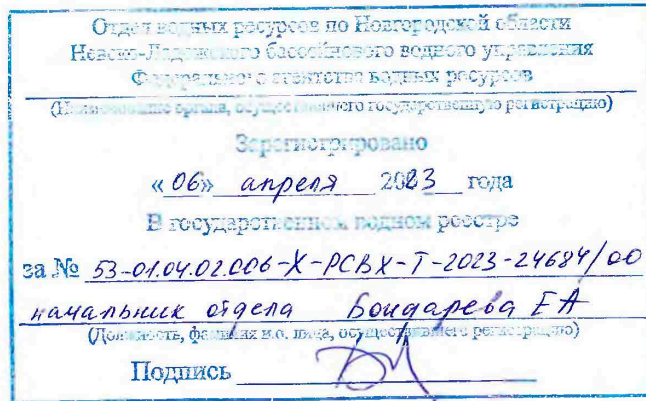 Отдел водных ресурсов по Новгородской области
Невско-Ладожского бассейнового водного управления
Федерального агентства водных ресурсов
(Наименование органа, осуществившего государственную регистрацию)
Зарегистрировано
«06» апреля 2023 года
В государственном водном реестре
за № 53-01.04.02.006-Х-РСВХ-Т-2023-24684/00
начальник отдела Бондарева ЕА
(Должность, фамилия и.о. лица, осуществившего регистрацию)
Подпись